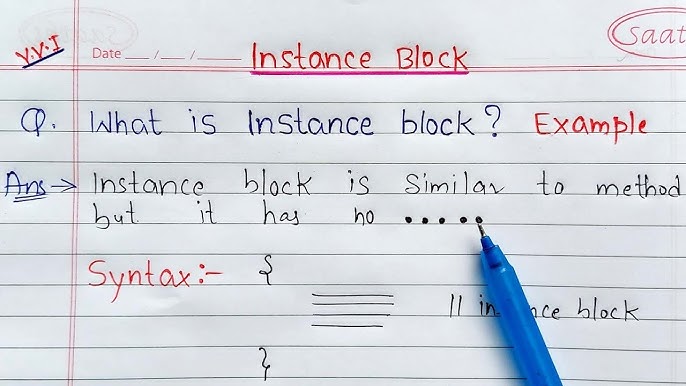 V.V.I
Date __/__/__ Instance Block
Saat
Q. What is Instance block? Example
Ans → Instance block is Similar to method
but it has no .....
Syntax:- {
// in ce block
}